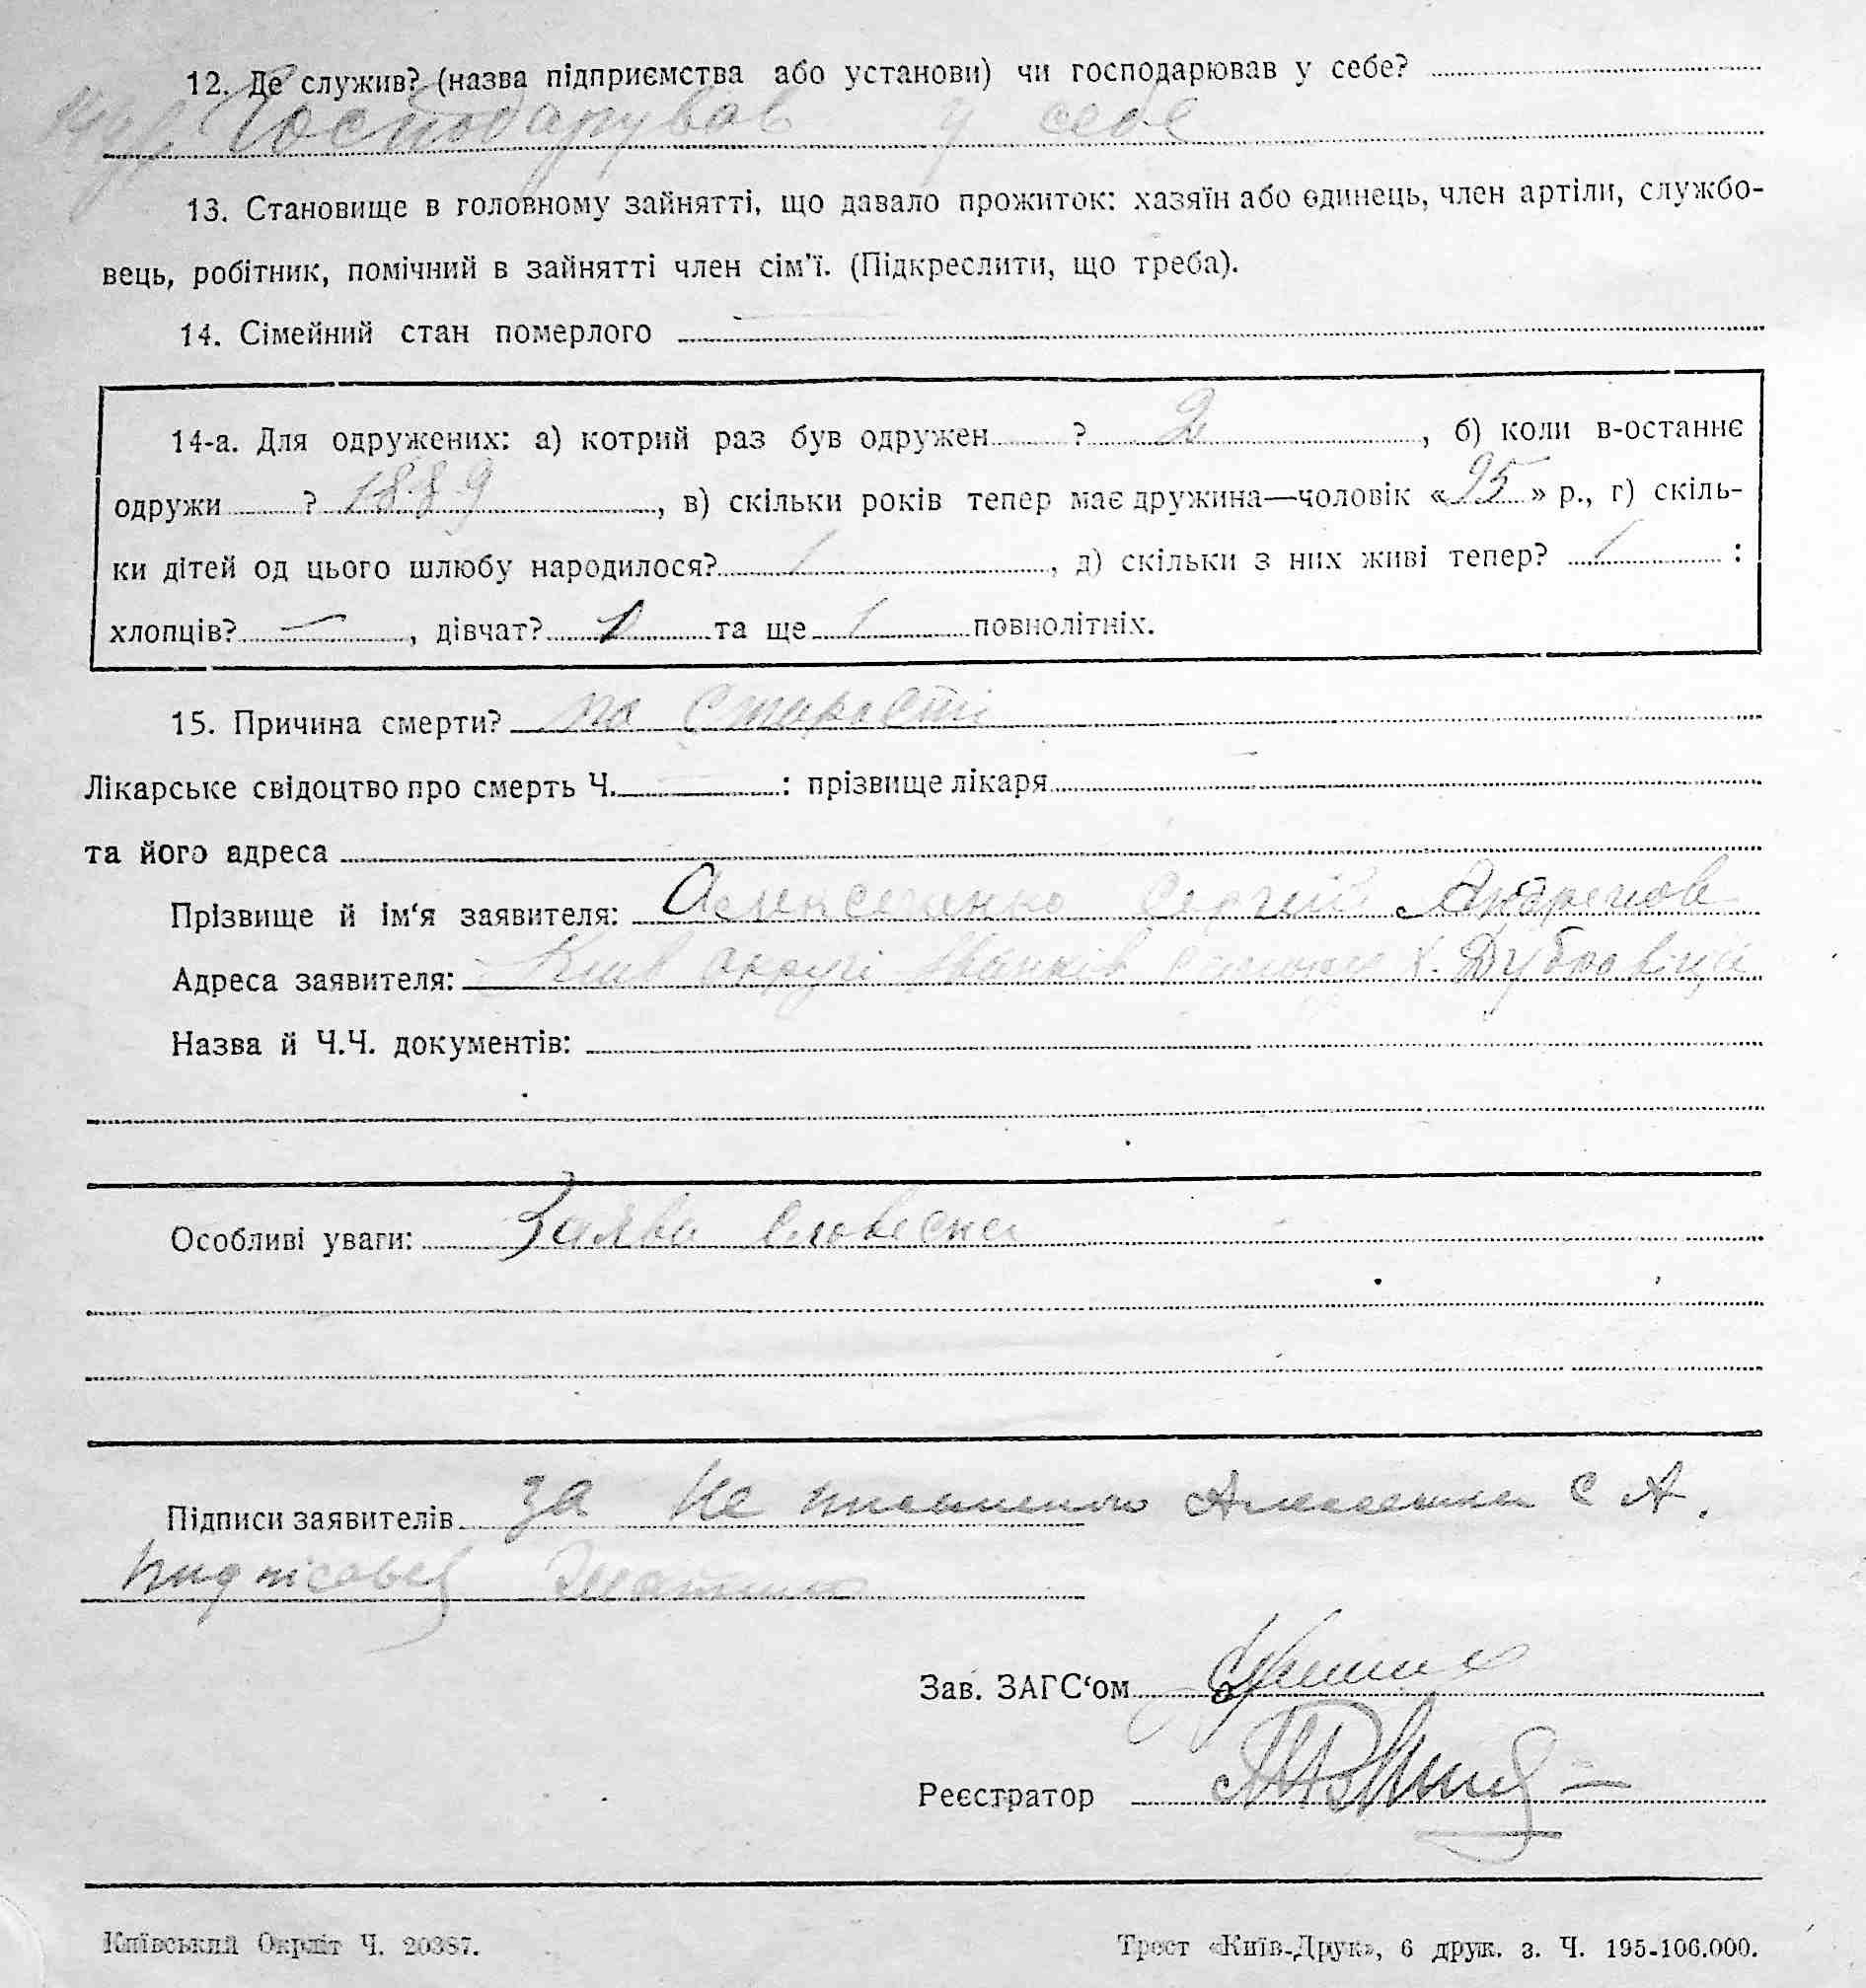 12. Де служив? (назва підприємства або установи) чи господарював у себе?
Господарував у себе
13. Становище в головному зайнятті, що давало прожиток: хазяїн або одинець, член артіли, службо-
вець, робітник, помічний в зайнятті член сім'ї. (Підкреслити, що треба).
14. Сімейний стан померлого
14-а. Для одружених: а) котрий раз був одружен ? 2, б) коли в-останнє
одружи ? 1889, в) скільки років тепер має дружина—чоловік «95» р., г) скіль-
ки дітей од цього шлюбу народилося? 1, д) скільки з них живі тепер? 1 :
хлопців? —, дівчат? 1 та ще 1 повнолітніх.
15. Причина смерти? по старості
Лікарське свідоцтво про смерть Ч. — : прізвище лікаря
та його адреса
Прізвище й ім'я заявителя: Алексеенко Сергій Андреиов
Адреса заявителя: Київ округі х. Дубровіця
Назва й Ч.Ч. документів:
Особливі уваги: Заява словесна
Підписи заявителів за не С А.
Зав. ЗАГС'ом
Реєстратор
Київський Окрліт Ч. 20387.
Трест «Київ-Друк», 6 друк. з. Ч. 195-106.000.